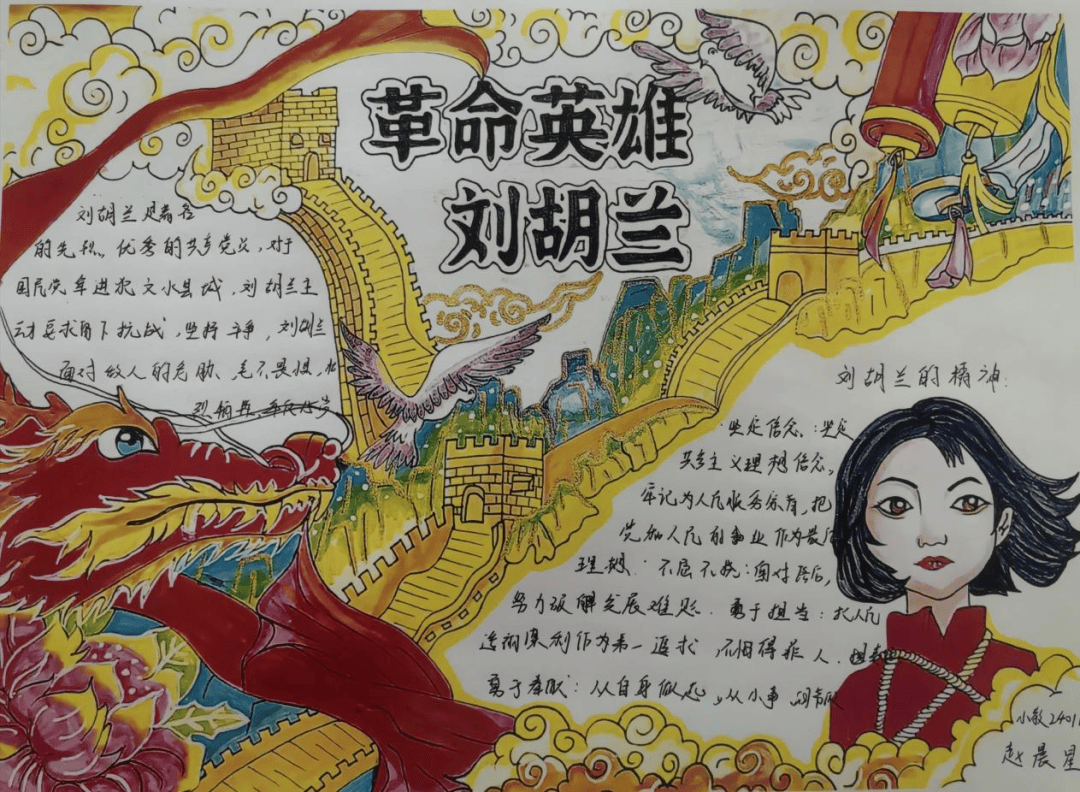 革命英雄
刘胡兰
刘胡兰是著名
的先烈，优秀的共产党义，对于
国民党军进犯文水县城，刘胡兰主
动要求留下抗战，坚持斗争，刘胡兰
面对敌人的危胁，毛不畏惧，
刘胡兰的精神：
坚定信念：坚定
共产主义理想信念，
牢记为人民服务宗旨，把
党和人民的事业作为最
理想：不屈不挠：面对
努力破解发展难题．勇于担当：
作为第一追求，不怕得罪人．
：从自身做起，从小事
小教2401
赵晨星